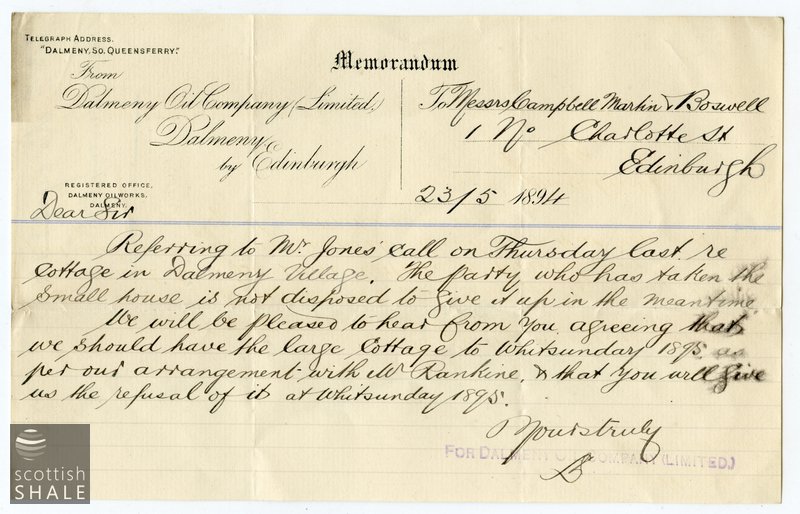 TELEGRAPH ADDRESS.
"DALMENY, SO. QUEENSFERRY."
Memorandum
From
Dalmeny Oil Company (Limited,)
Dalmeny
by Edinburgh
REGISTERED OFFICE,
DALMENY OILWORKS,
DALMENY.
To Messrs Campbell Martin & Boswell
1 No Charlotte St
Edinburgh
23/5 1894
Dear Sir
Referring to Mr Jones' call on Thursday last re
Cottage in Dalmeny Village. The party who has taken the
small house is not disposed to give it up in the meantime
We will be pleased to hear from you agreeing that
we should have the large Cottage to Whitsunday 1895 as
per our arrangement with Mr Rankine, & that you will give
us the refusal of it at Whitsunday 1895.
Yours truly
FOR DALMENY OIL COMPANY (LIMITED.)
scottish
SHALE